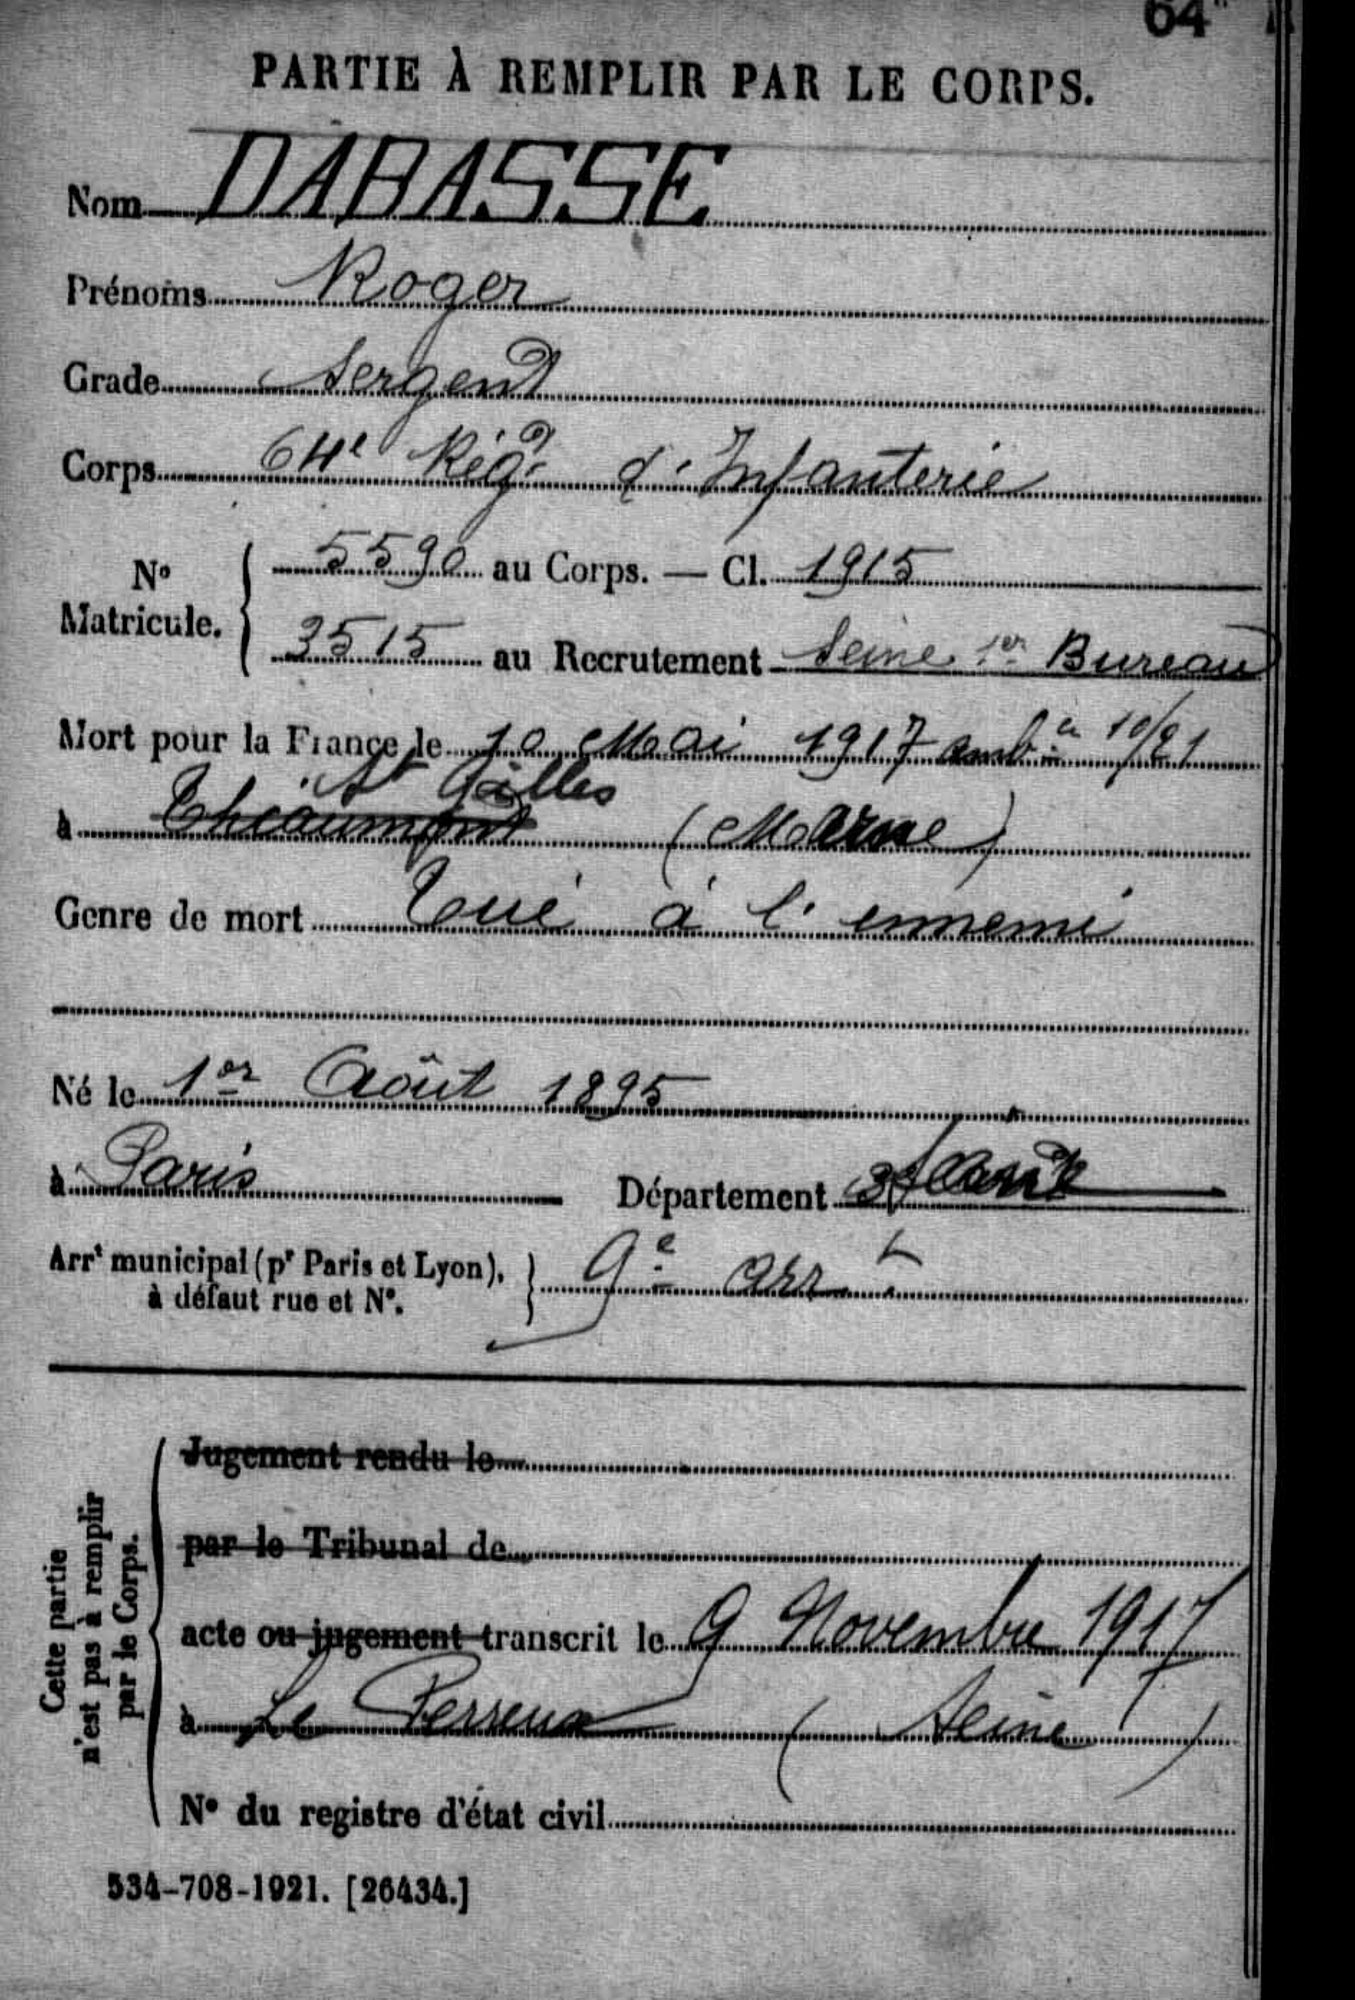 64
PARTIE À REMPLIR PAR LE CORPS.
Nom DABASSE
Prénoms Roger
Grade Sergent
Corps 64e Régt d'Infanterie
No Matricule. 5590 au Corps. — Cl. 1915
3515 au Recrutement Seine 1er Bureau
Mort pour la France le 10 Mai 1917 amb. 10/21
St Gilles
à Théaumont (Marne)
Genre de mort Tué à l'ennemi
Né le 1er Août 1895
à Paris Département
Arrt municipal (pr Paris et Lyon), à défaut rue et No. 9e arrt
Cette partie n'est pas à remplir par le Corps.
Jugement rendu le
par le Tribunal de
acte ou jugement transcrit le 9 Novembre 1917
à Le Perreux (Seine)
No du registre d'état civil
534-708-1921. [26434.]